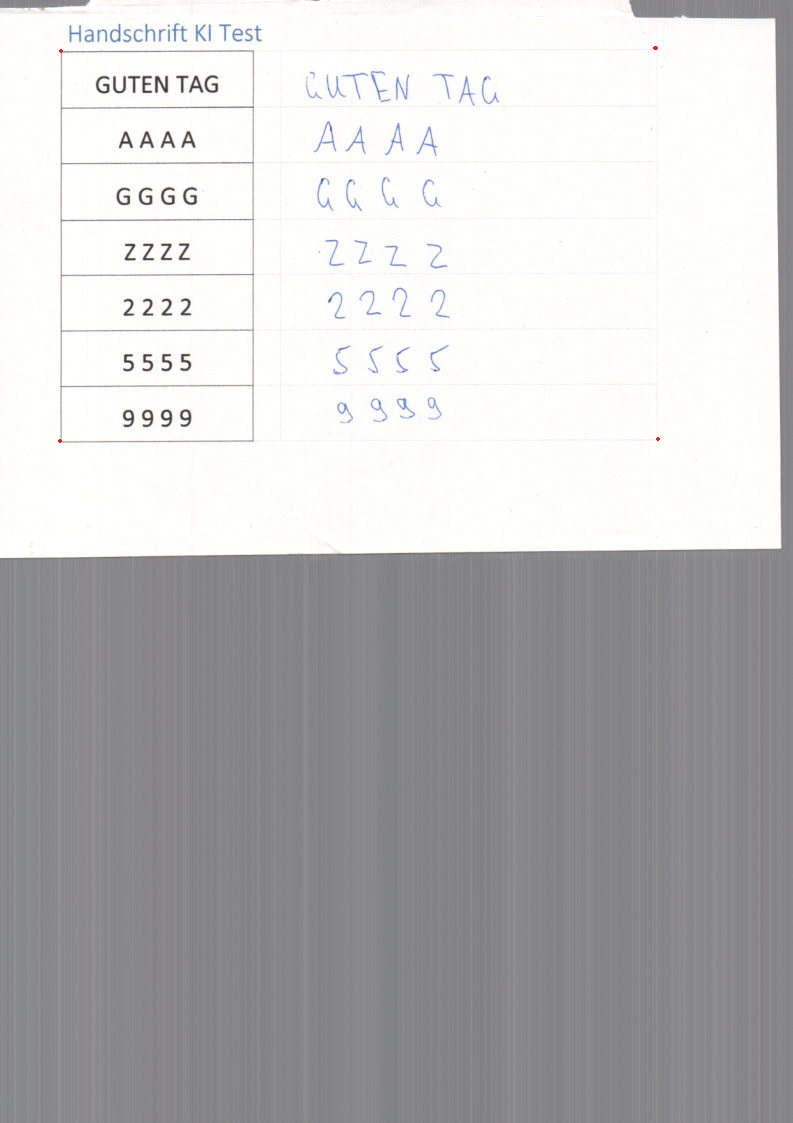 Handschrift KI Test
GUTEN TAG GUTEN TAG
A A A A A A A A
G G G G G G G G
Z Z Z Z Z Z Z Z
2 2 2 2 2 2 2 2
5 5 5 5 5 5 5 5
9 9 9 9 9 9 9 9